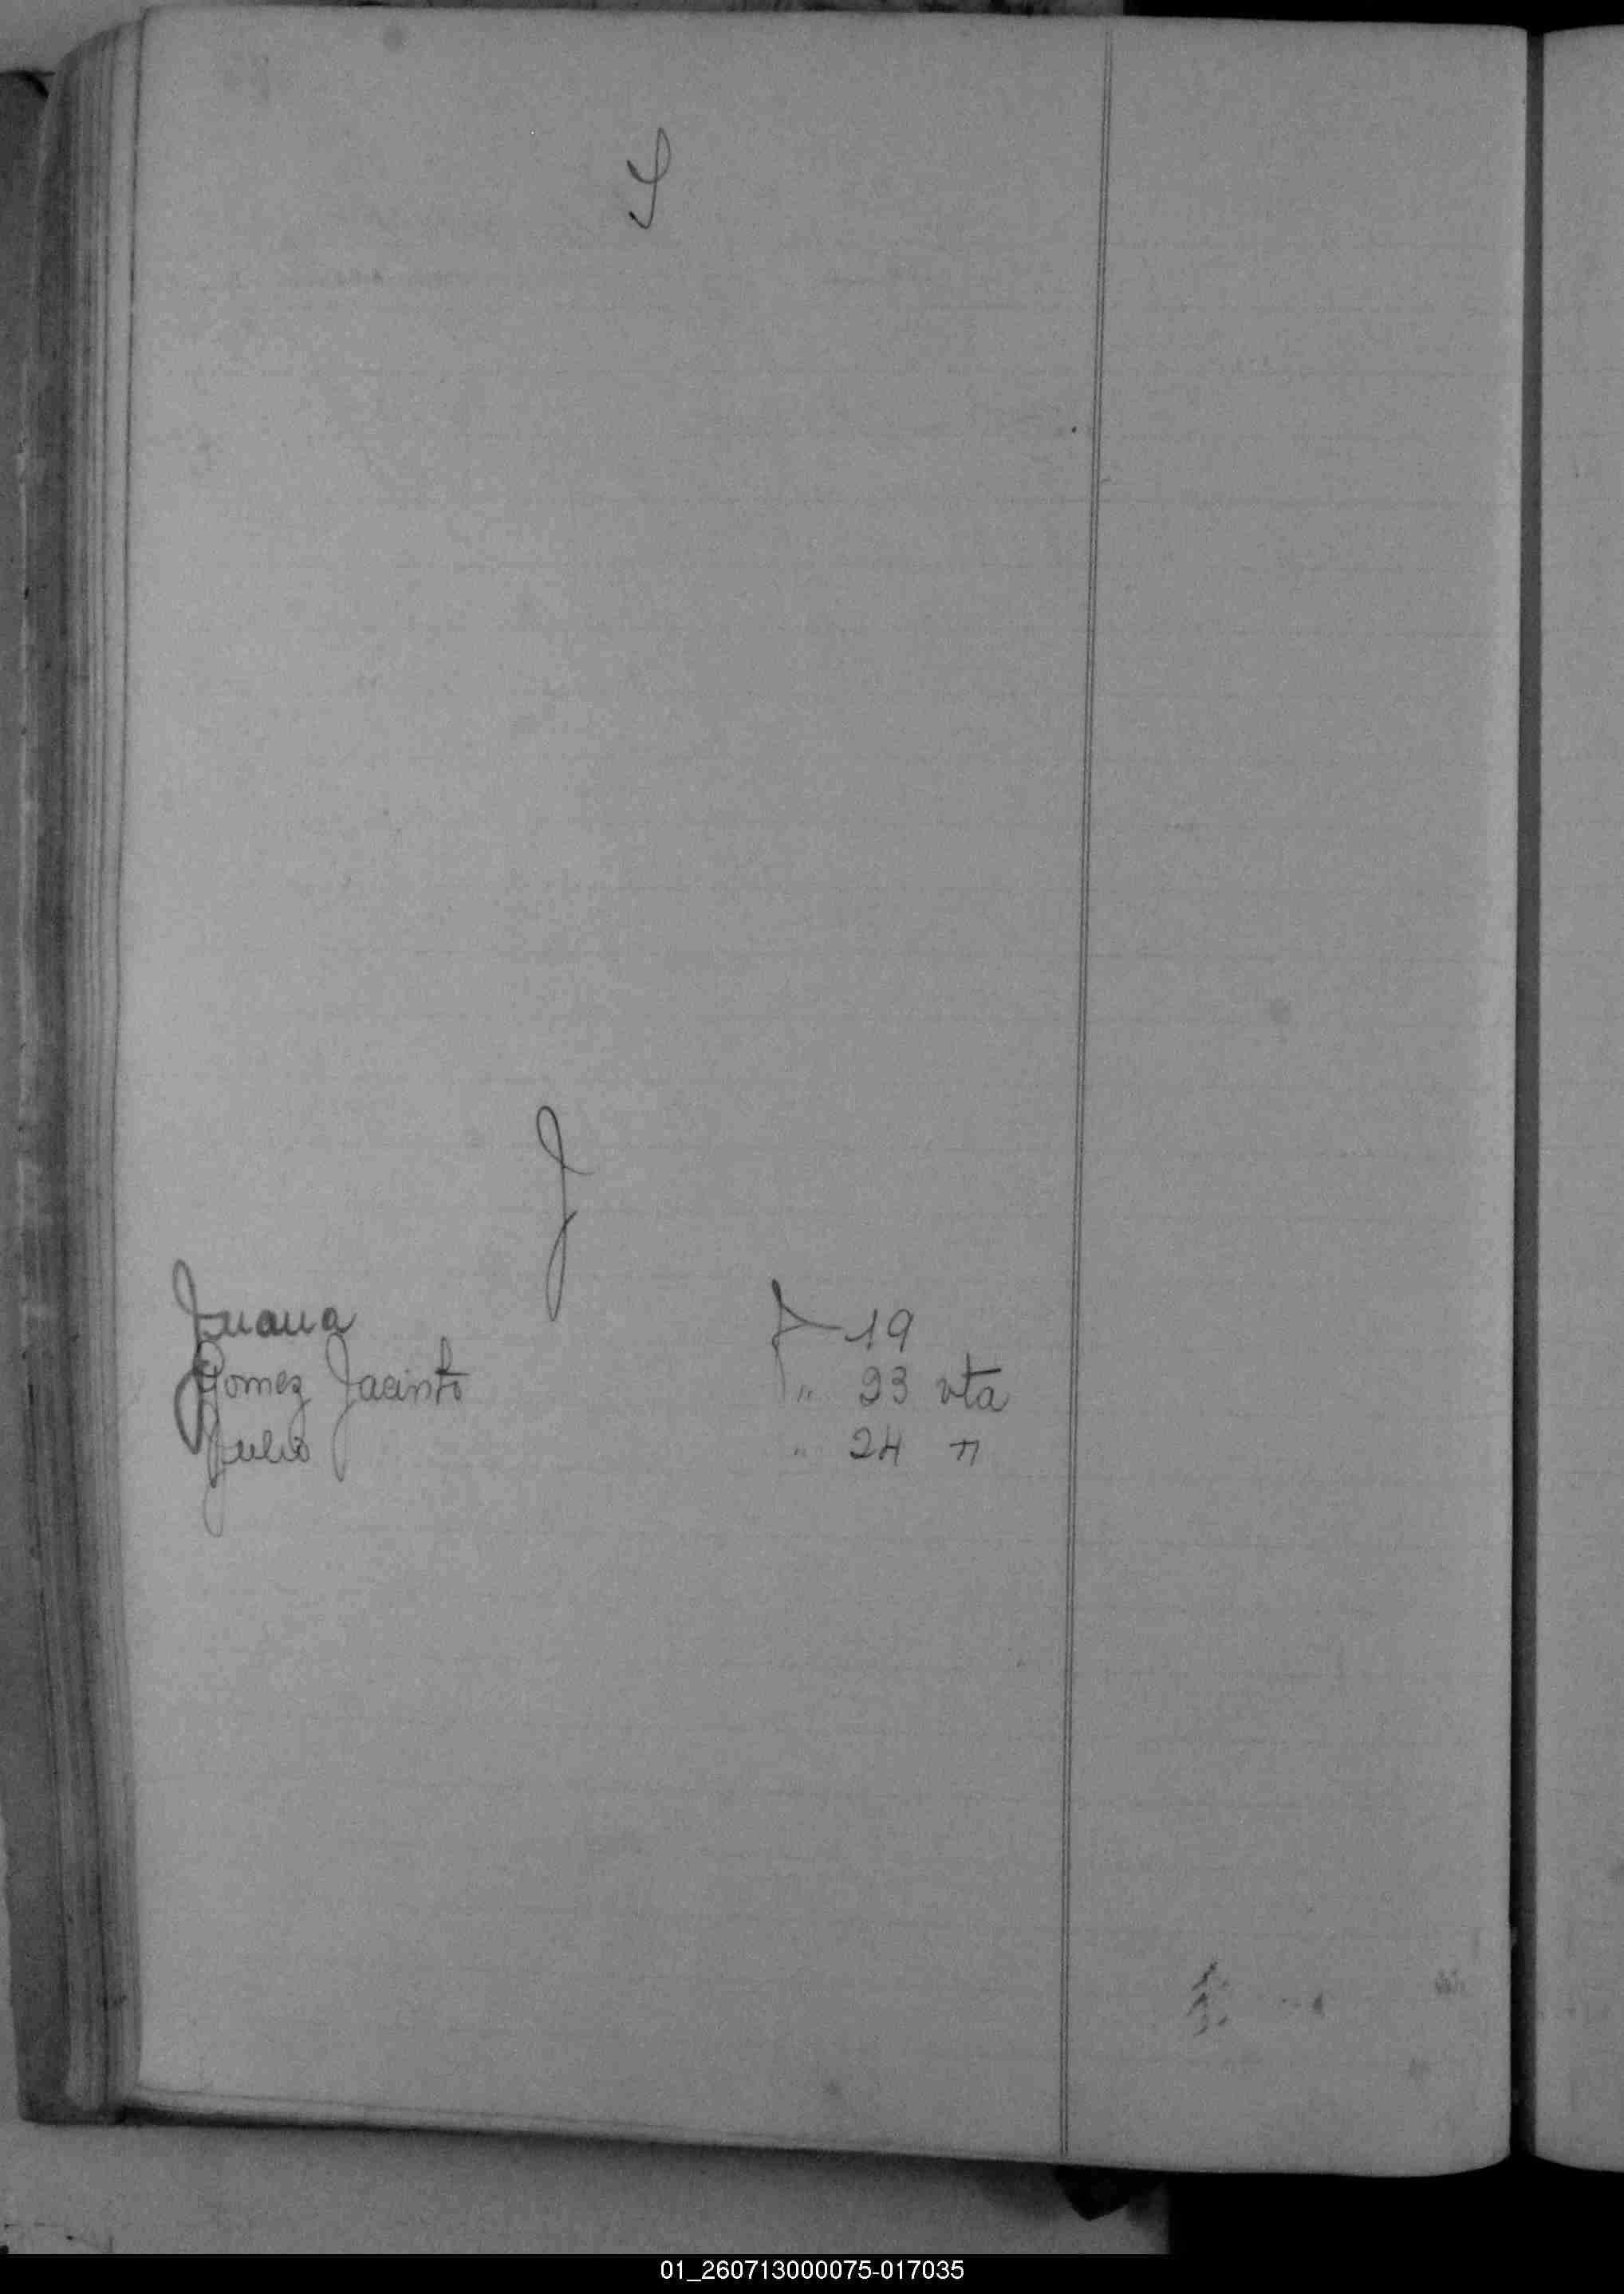 I
J
Juana F 19
Gomez Jacinto " 23 vta
Julio " 24 "
01_260713000075-017035